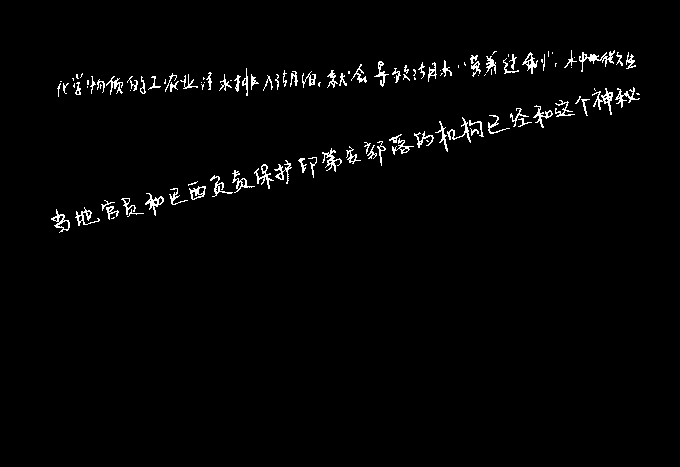 化学物质的工农业污水排入湖泊,就会导致湖水“营养过剩”,水中微生
当地官员和巴西负责保护印第安部落的机构已经和这个神秘